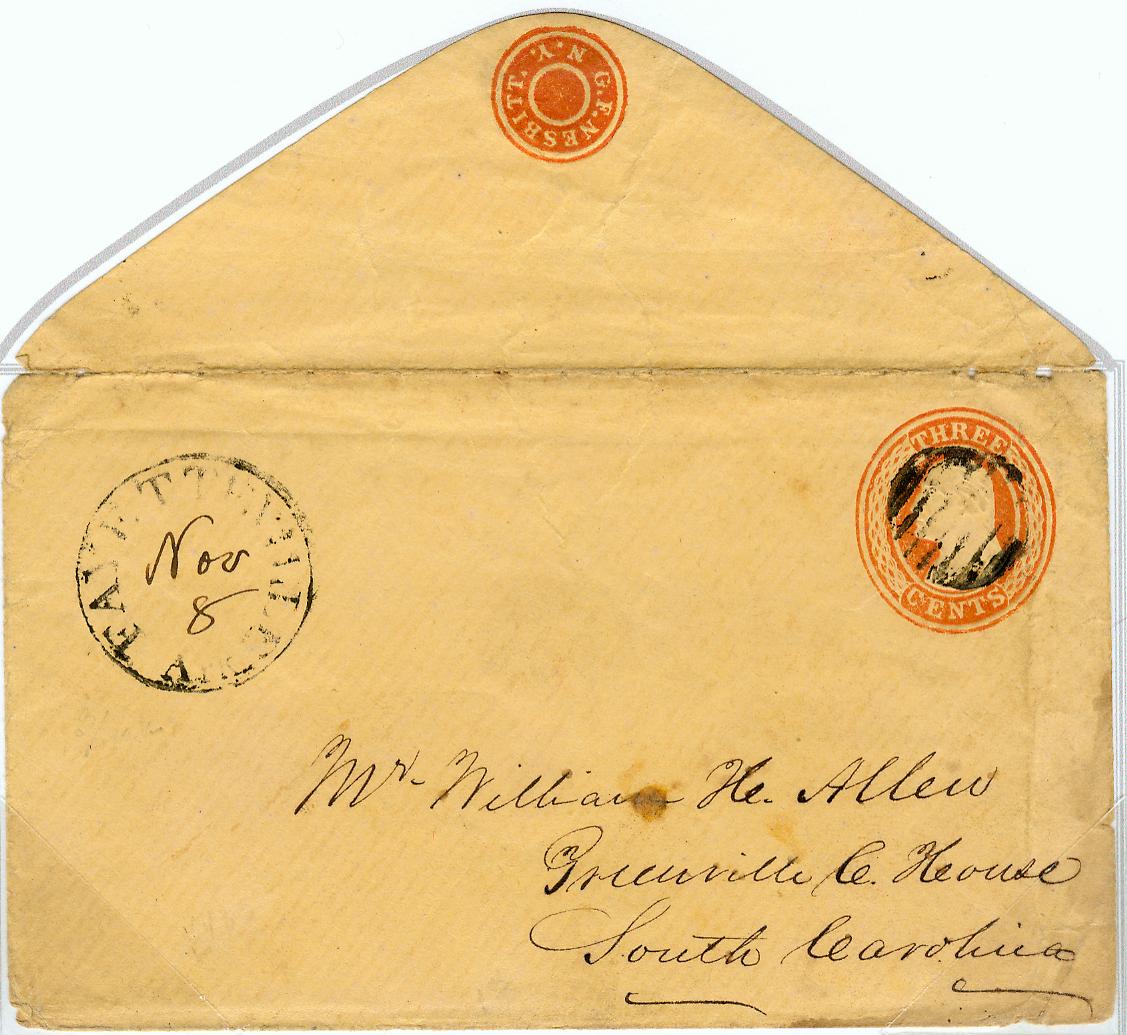 G.F. NESBITT. N.Y.
THREE
CENTS
FAYETTEVILLE
Nov
8
Mr. William H. Allen
Greenville C. House
South Carolina